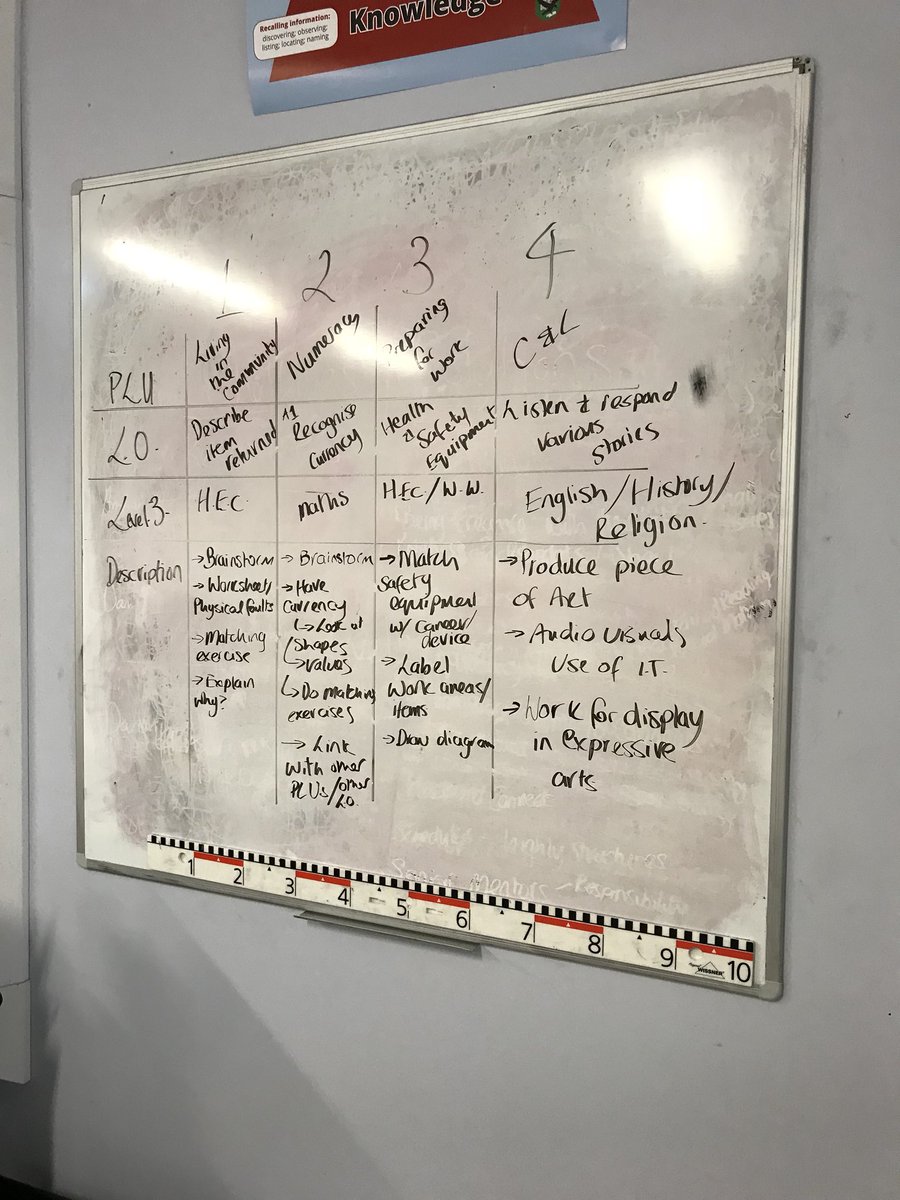 Recalling information:
discovering; observing;
listing; locating; naming
Knowledge
1 2 3 4
PLU
Living
in
the
Community
Numeracy
Preparing
for
Work
C&L
L.O.
Describe
item
returned
Recognise
Currency
Health
& Safety
Equipment
Listen & respond
various
stories
Level 3.
H.E.C
maths
H.E.C/W.W.
English/History/
Religion.
Description
→ Brainstorm
→ Worksheet/
Physical faults
→ Matching
exercise
→ Explain
why?
→ Brainstorm
→ Have
Currency
↳ Look at
Shapes
↳ values
↳ Do matching
exercises
→ Link
with other
PLUs/other
L.O.
→ Match
safety
equipment
w/ career/
device
→ Label
Work areas/
items
→ Draw diagram
→ Produce piece
of Art
→ Audio visuals
Use of I.T.
→ Work for display
in expressive
arts
Senior Mentors - Responsibility
1 2 3 4 5 6 7 8 9 10
WISSNER